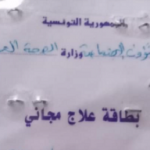 الجمهورية التونسية
وزارة الصحة
بطاقة علاج مجاني